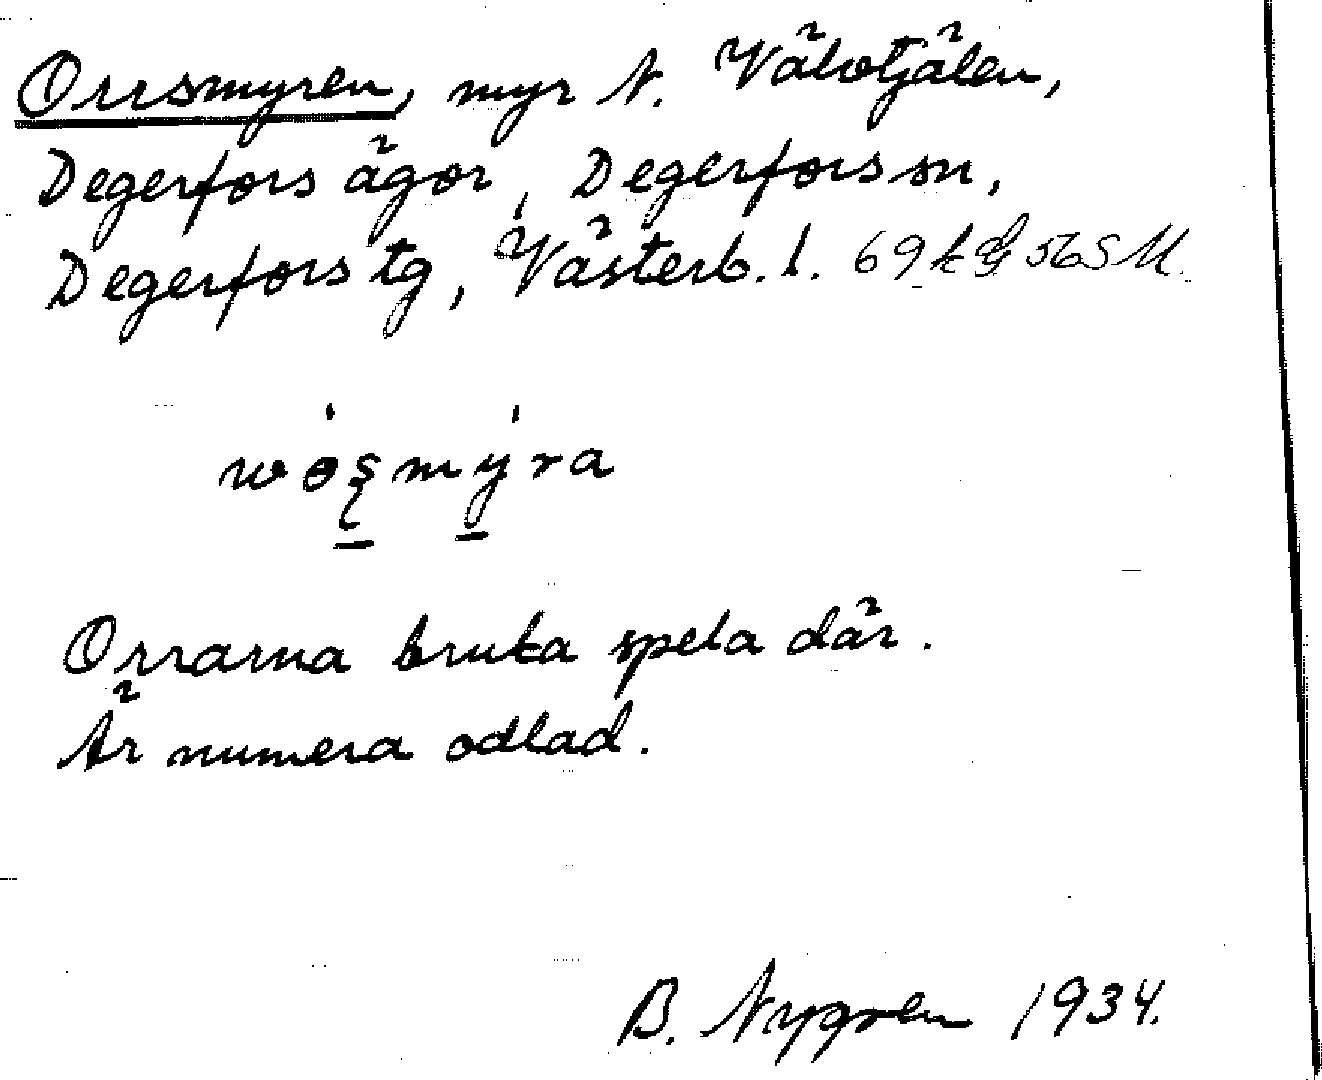 Orrsmyren, myr N. Välvtjälen,
Degerfors ägor, Degerfors sn,
Degerfors tg, Västerb. l. 69
Orrarna bruka spela där.
Är numera odlad.
B. Nygren 1934.